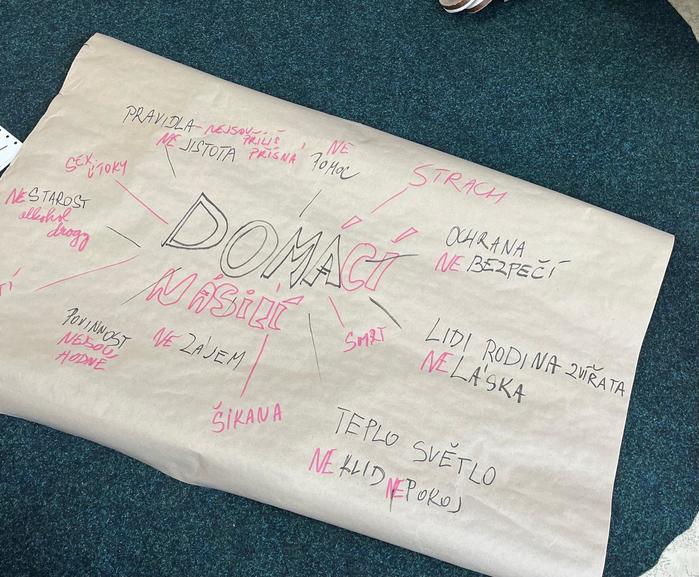 PRAVIDLA - NEJSOU PŘÍLIŠ PŘÍSNÁ
NEJISTOTA
NE POMOC
SEX ÚTOKY
STRACH
NESTAROST
alkohol
drogy
DOMÁCÍ
NÁSILÍ
OCHRANA
NEBEZPEČÍ
POVINNOST
NEJSOU
HODNĚ
NEZÁJEM
SMRT
LIDI RODINA ZVÍŘATA
NELÁSKA
ŠIKANA
TEPLO SVĚTLO
NEKLID NEPOKOJ